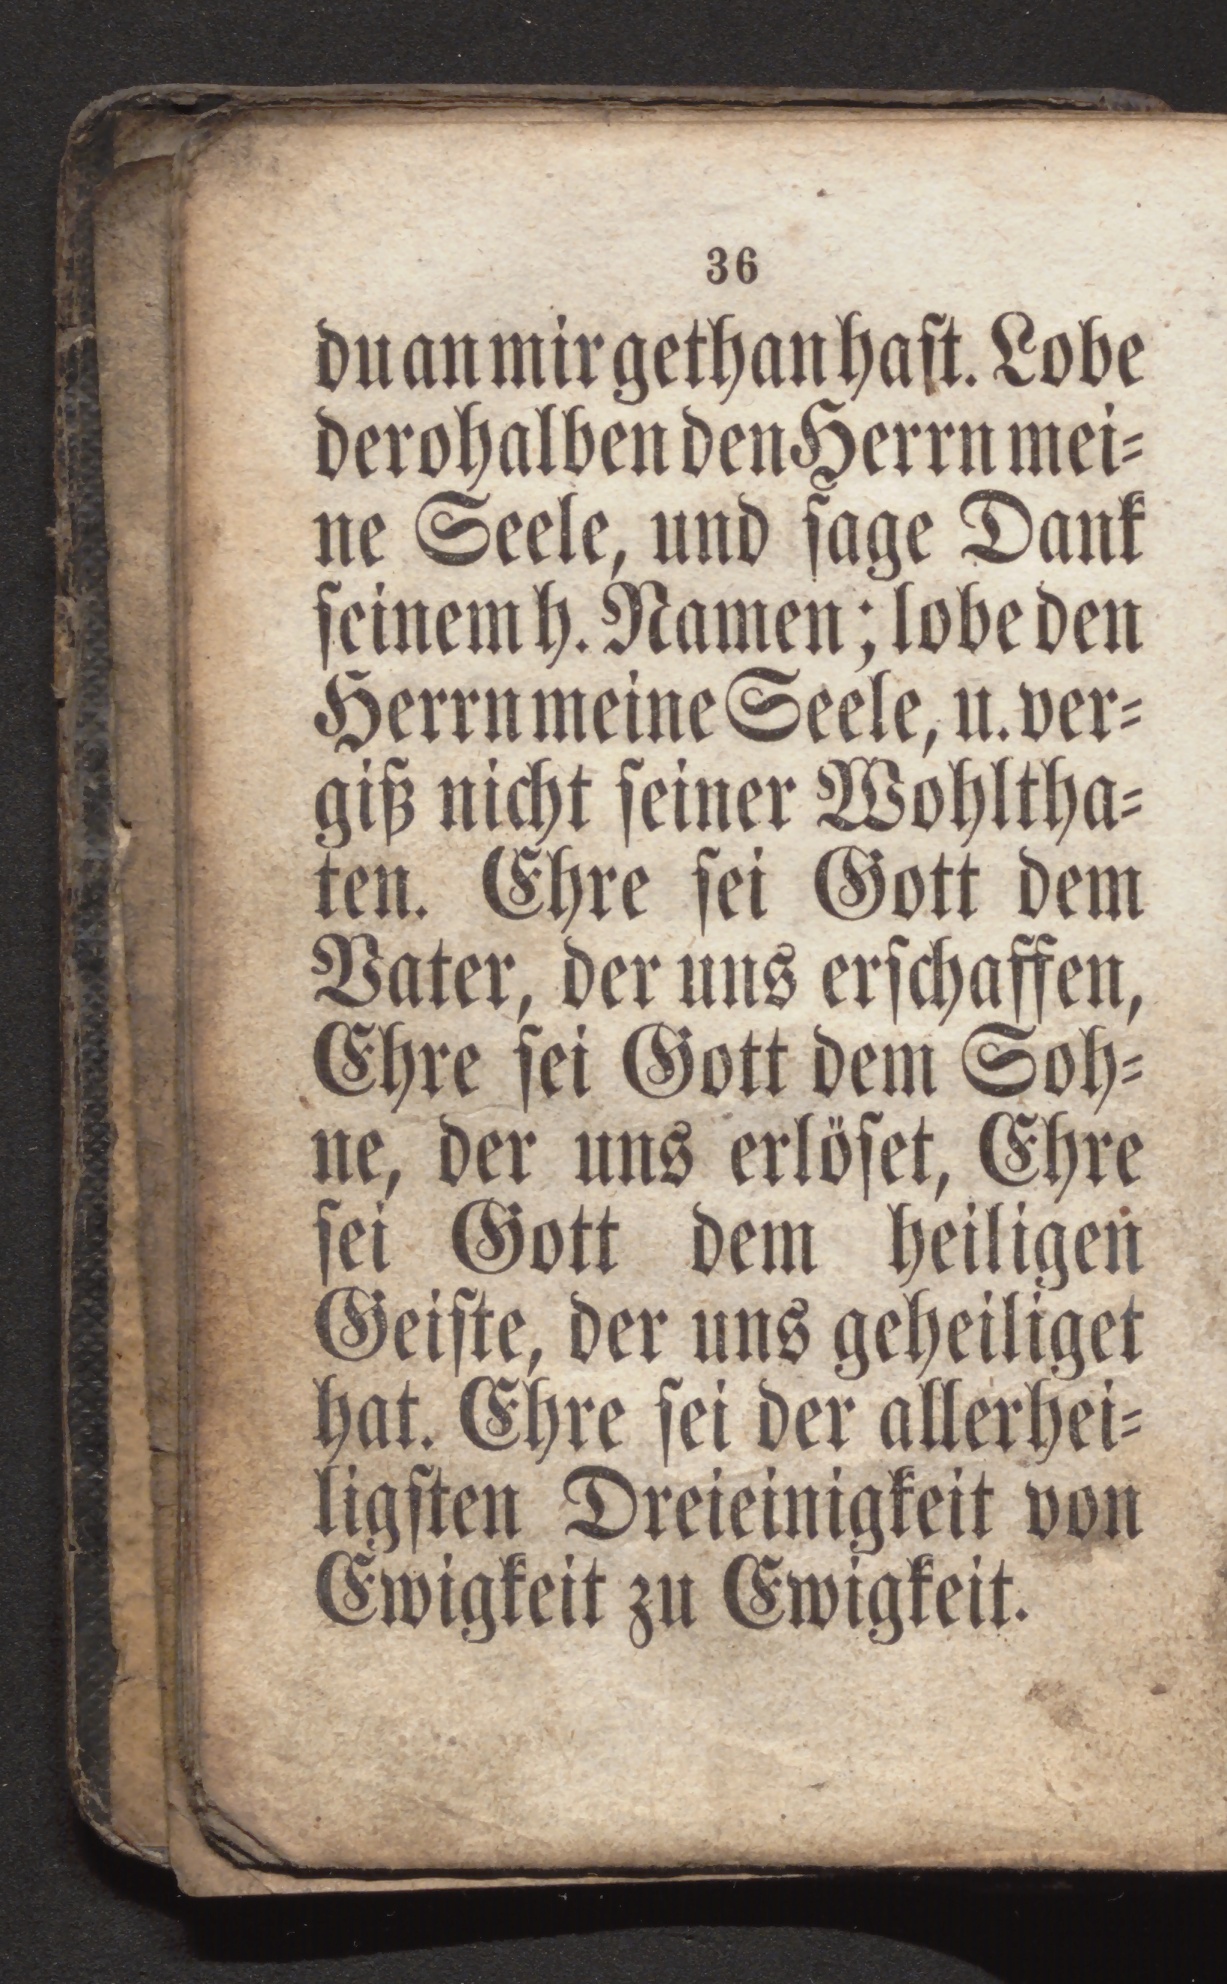 36
du an mir gethan haſt. Lobe
derohalben den Herrn mei⸗
ne Seele, und ſage Dank
ſeinem h. Namen; lobe den
Herrn meine Seele, u. ver⸗
giß nicht ſeiner Wohltha⸗
ten. Ehre ſei Gott dem
Vater, der uns erſchaffen,
Ehre ſei Gott dem Soh⸗
ne, der uns erlöſet, Ehre
ſei Gott dem heiligen
Geiſte, der uns geheiliget
hat. Ehre ſei der allerhei⸗
ligſten Dreieinigkeit von
Ewigkeit zu Ewigkeit.